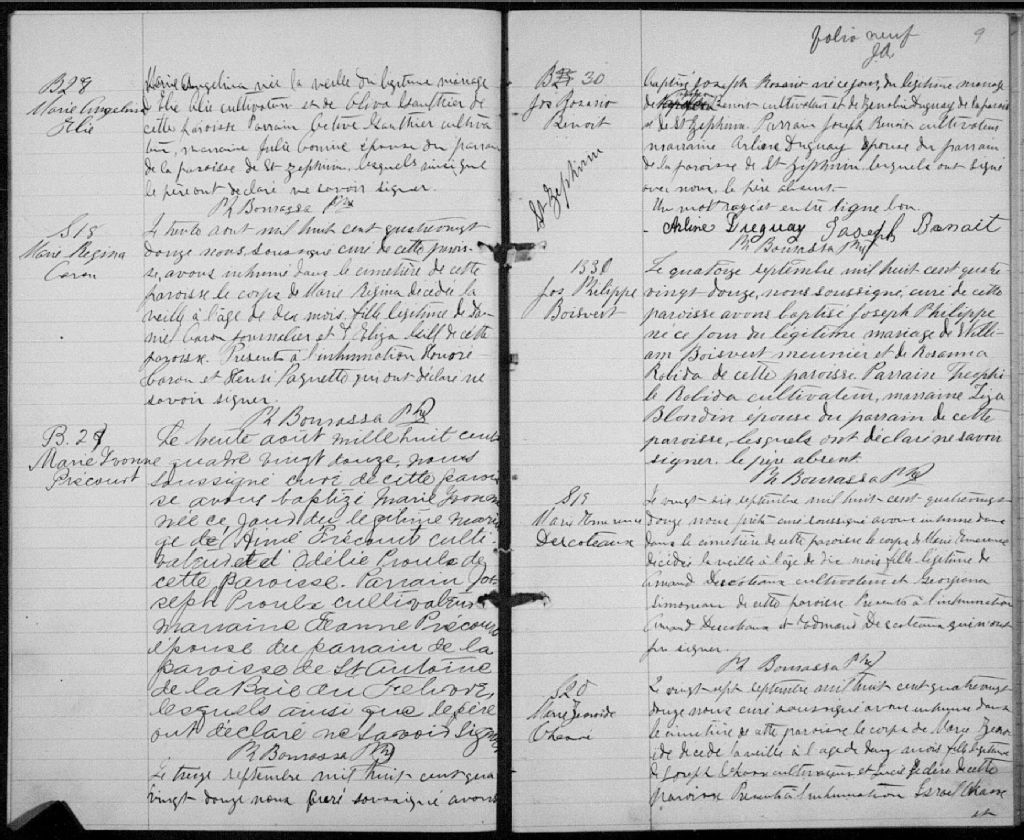 B28
Marie Angelina
Elie
Marie Angelina née la veille du légitime mariage
Elie cultivateur et de Oliva Gauthier de
cette paroisse Parrain Gauthier cultiva
teur, marraine Julie épouse du parrain
de la paroisse de St Zephirin, lesquels ainsi que
le père ont declaré ne savoir signer.
Ph Bourassa Ptre
S18
Marie Regina
Caron
Le trente aout mil huit cent quatrevingt
douze nous soussigné curé de cette parois-
se, avons inhumé dans le cimetière de cette
paroisse le corps de Marie Regina decedée la
veille à l'âge de dix mois, fille legitime de
Caron journalier et d'Eliza de cette
paroisse. Presents à l'inhumation Honoré
Caron et Henri Paquette qui ont déclaré ne
savoir signer.
Ph Bourassa Ptre
B. 29
Marie Yvonne
Précourt
Le trente aout mille huit cent
quatre vingt douze, nous
soussigné curé de cette parois
se avons baptizé Marie Yvonne
née ce jour du legitime maria
ge de Aimé Précourt culti-
vateur et d'Adélie Proulx de
cette paroisse. Parrain Jo-
seph Proulx cultivateur
marraine Jeanne Précourt
épouse du parrain de la
paroisse de St Antoine
de la Baie du Febvre,
lesquels ainsi que le père
ont déclaré ne savoir signer
Ph Bourassa Ptre
Le treize septembre mil huit cent qua
vingt douze nous curé soussigné avons
folio neuf
J.A.
9
B 30
Jos Rosario
Benoit
St Zephirin
baptisé Joseph Rosario né ce jour, du légitime mariage
de Benoit cultivateur et de Duguay de la parois
se de St Zephirin. Parrain Joseph Benoit cultivateur
marraine Arline Duguay épouse du parrain
de la paroisse de St Zephirin lesquels ont signé
avec nous, le père absent.
Un mot rayé et entre ligne bon.
Arline Duguay Joseph Benoit
Ph Bourassa Ptre
B31
Jos Philippe
Boisvert
Le quatorze septembre mil huit cent quatre
vingt douze, nous soussigné, curé de cette
paroisse avons baptisé Joseph Philippe
né ce jour du légitime mariage de Willi-
am Boisvert meunier et de Rosanna
Robida de cette paroisse Parrain Theophi-
le Robida cultivateur, marraine Liza
Blondin épouse du parrain de cette
paroisse, lesquels ont déclaré ne savoir
signer. le père absent
Ph Bourassa Ptre
S19
Marie Emerence
Descoteaux
Le vingt-six septembre mil huit-cent quatrevingt
douze nous prêtre curé soussigné avons inhumé dans
dans le cimetière de cette paroisse le corps de Marie Emerence
décédée la veille à l'âge de dix mois fille legitime de
Amand Descoteaux cultivateur et Georgiana
Simoneau de cette paroisse Presents à l'inhumation
Amand Descoteaux et Edmond Descoteaux qui n'ont
pu signer.
Ph Bourassa Ptre
S20
Marie Zenoide
Le vingt-sept septembre mil huit cent quatrevingt
douze nous curé soussigné avons inhumé dans
le cimetière de cette paroisse le corps de Marie Zeno
ide decedée la veille à l'age de mois fille legitime
de Joseph cultivateur et Lucie Leclerc de cette
paroisse Presents à l'inhumation Israel
et